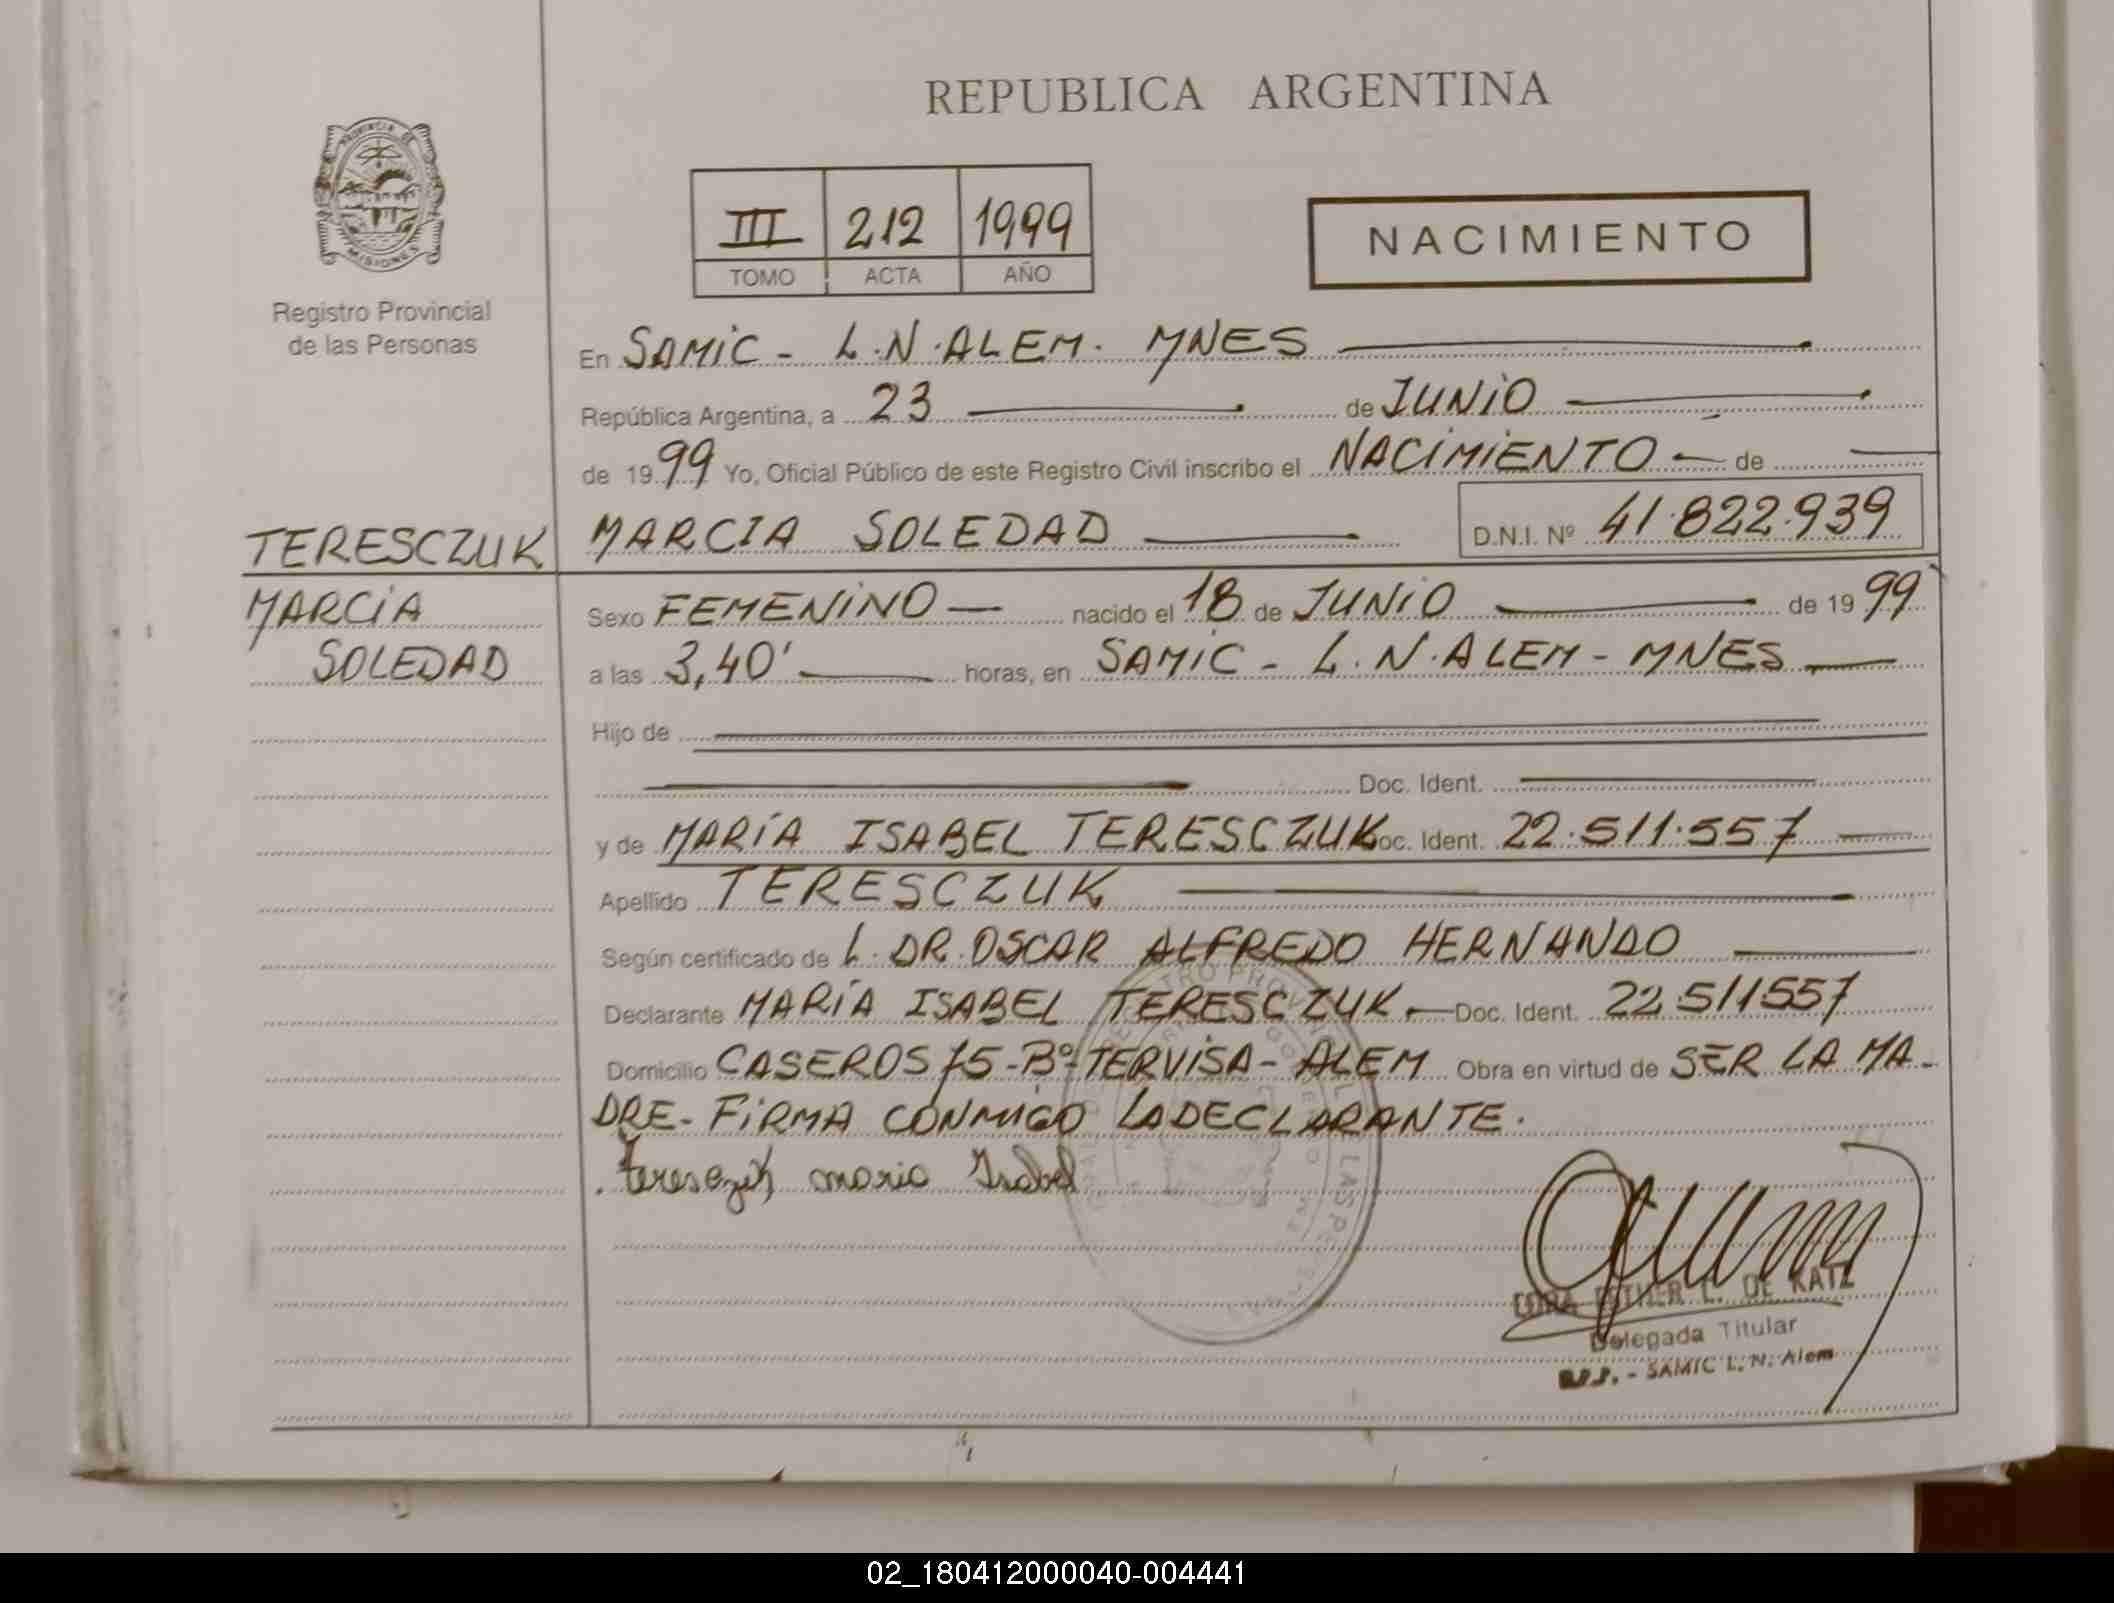 REPUBLICA ARGENTINA
PROVINCIA DE MISIONES
Registro Provincial
de las Personas
III 212 1999
TOMO ACTA AÑO
NACIMIENTO
En SAMIC - L.N.ALEM. MNES
República Argentina, a 23 de JUNIO
de 1999 Yo, Oficial Público de este Registro Civil inscribo el NACIMIENTO de
TERESCZUK MARCIA SOLEDAD D.N.I. Nº 41.822.939
MARCIA
SOLEDAD
Sexo FEMENINO nacido el 18 de JUNIO de 1999
a las 3,40' horas, en SAMIC - L.N.ALEM - MNES
Hijo de
Doc. Ident.
y de MARÍA ISABEL TERESCZUK Doc. Ident. 22.511.557
Apellido TERESCZUK
Según certificado de L. DR. OSCAR ALFREDO HERNANDO
Declarante MARÍA ISABEL TERESCZUK Doc. Ident. 22 511557
Domicilio CASEROS 75 - Bº TERVISA - ALEM Obra en virtud de SER LA MA-
DRE - FIRMA CONMIGO LA DECLARANTE.
maria Isabel
ESTHER L. DE KATZ
Delegada Titular
R.P.P. - SAMIC L. N. Alem
02_180412000040-004441